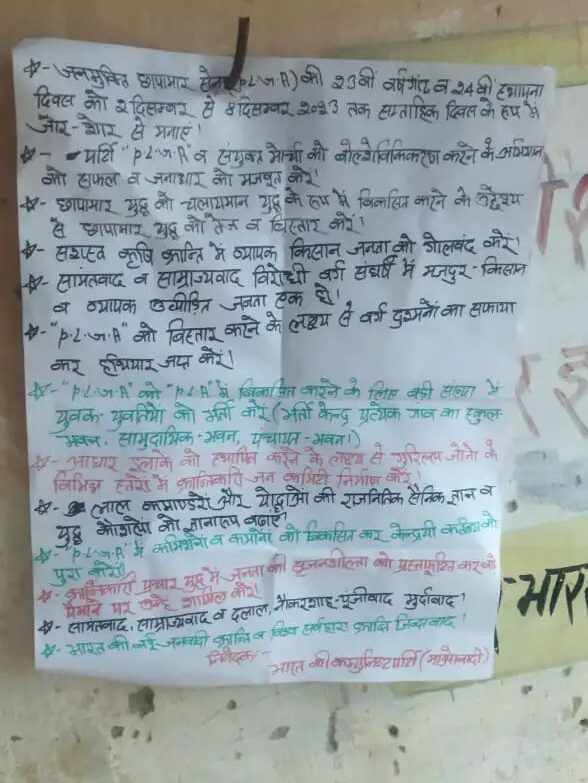 ☆- जनमुक्ति छापामार सेना (P.L.G.A) की 23वीं वर्षगांठ व 24वीं स्थापना
दिवस को 2 दिसम्बर से 8 दिसम्बर 2023 तक साप्ताहिक दिवस के रूप में
जोर-शोर से मनाएं!
☆- पार्टी "P.L.G.A" व संयुक्त मोर्चा को बोल्शेविकीकरण करने के अभियान
को सफल व जनाधार को मजबूत करें!
☆- छापामार युद्ध को चलायमान युद्ध के रूप में विकसित करने के उद्देश्य
से छापामार युद्ध को तेज व विस्तार करें!
☆- सशस्त्र कृषि क्रान्ति में व्यापक किसान जनता को गोलबंद करें!
☆- सामंतवाद व साम्राज्यवाद विरोधी वर्ग संघर्ष में मजदुर-किसान
व व्यापक उत्पीड़ित जनता एक हो!
☆- "P.L.G.A" को विस्तार करने के लक्ष्य से वर्ग दुश्मनों का सफाया
कर हथियार जप्त करें!
☆- "P.L.G.A" को "P.L.A" में विकसित करने के लिए बड़ी संख्या में
युवक-युवतियों को भर्ती करें (भर्ती केन्द्र प्रत्येक गांव का स्कुल-
भवन, सामुदायिक-भवन, पंचायत-भवन!)
☆- आधार इलाके को स्थापित करने के लक्ष्य से गुरिल्ला जोनों के
विभिन्न स्तरों में क्रान्तिकारी जन कमिटी निर्माण करें
☆- लाल कमाण्डरों और योद्धाओं की राजनितिक सैनिक ज्ञान व
युद्ध कौशलों की बढ़ाएं?
☆- "P.L.G.A" में कमिशनों व कमानों को विकसित कर केन्द्रीय कर्तव्य को
पुरा करें!
☆- क्रान्तिकारी प्रचार युद्ध में जनता की सृजनशीलता को प्रस्फुटित कर बड़े
पैमाने पर उन्हें शामिल करें!
☆- सामंतवाद, साम्राज्यवाद व दलाल, नौकरशाह-पूंजीवाद मुर्दाबाद!
☆- भारत की नई जनवादी क्रान्ति व विश्व सर्वहारा क्रान्ति जिन्दाबाद!
निवेदक-
भारत की कम्युनिस्ट पार्टी (माओवादी)
-भार